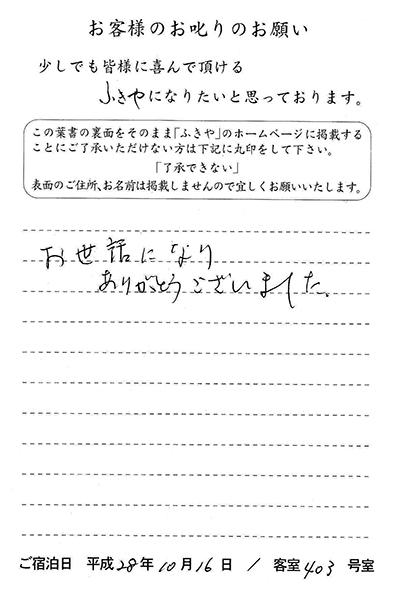 お客様のお叱りのお願い
少しでも皆様に喜んで頂ける
ふきやになりたいと思っております。
この葉書の裏面をそのまま「ふきや」のホームページに掲載する
ことにご了承いただけない方は下記に丸印をして下さい。
「了承できない」
表面のご住所、お名前は掲載しませんので宜しくお願いいたします。
お世話になり
ありがとうございました。
ご宿泊日 平成28年10月16日 / 客室403号室